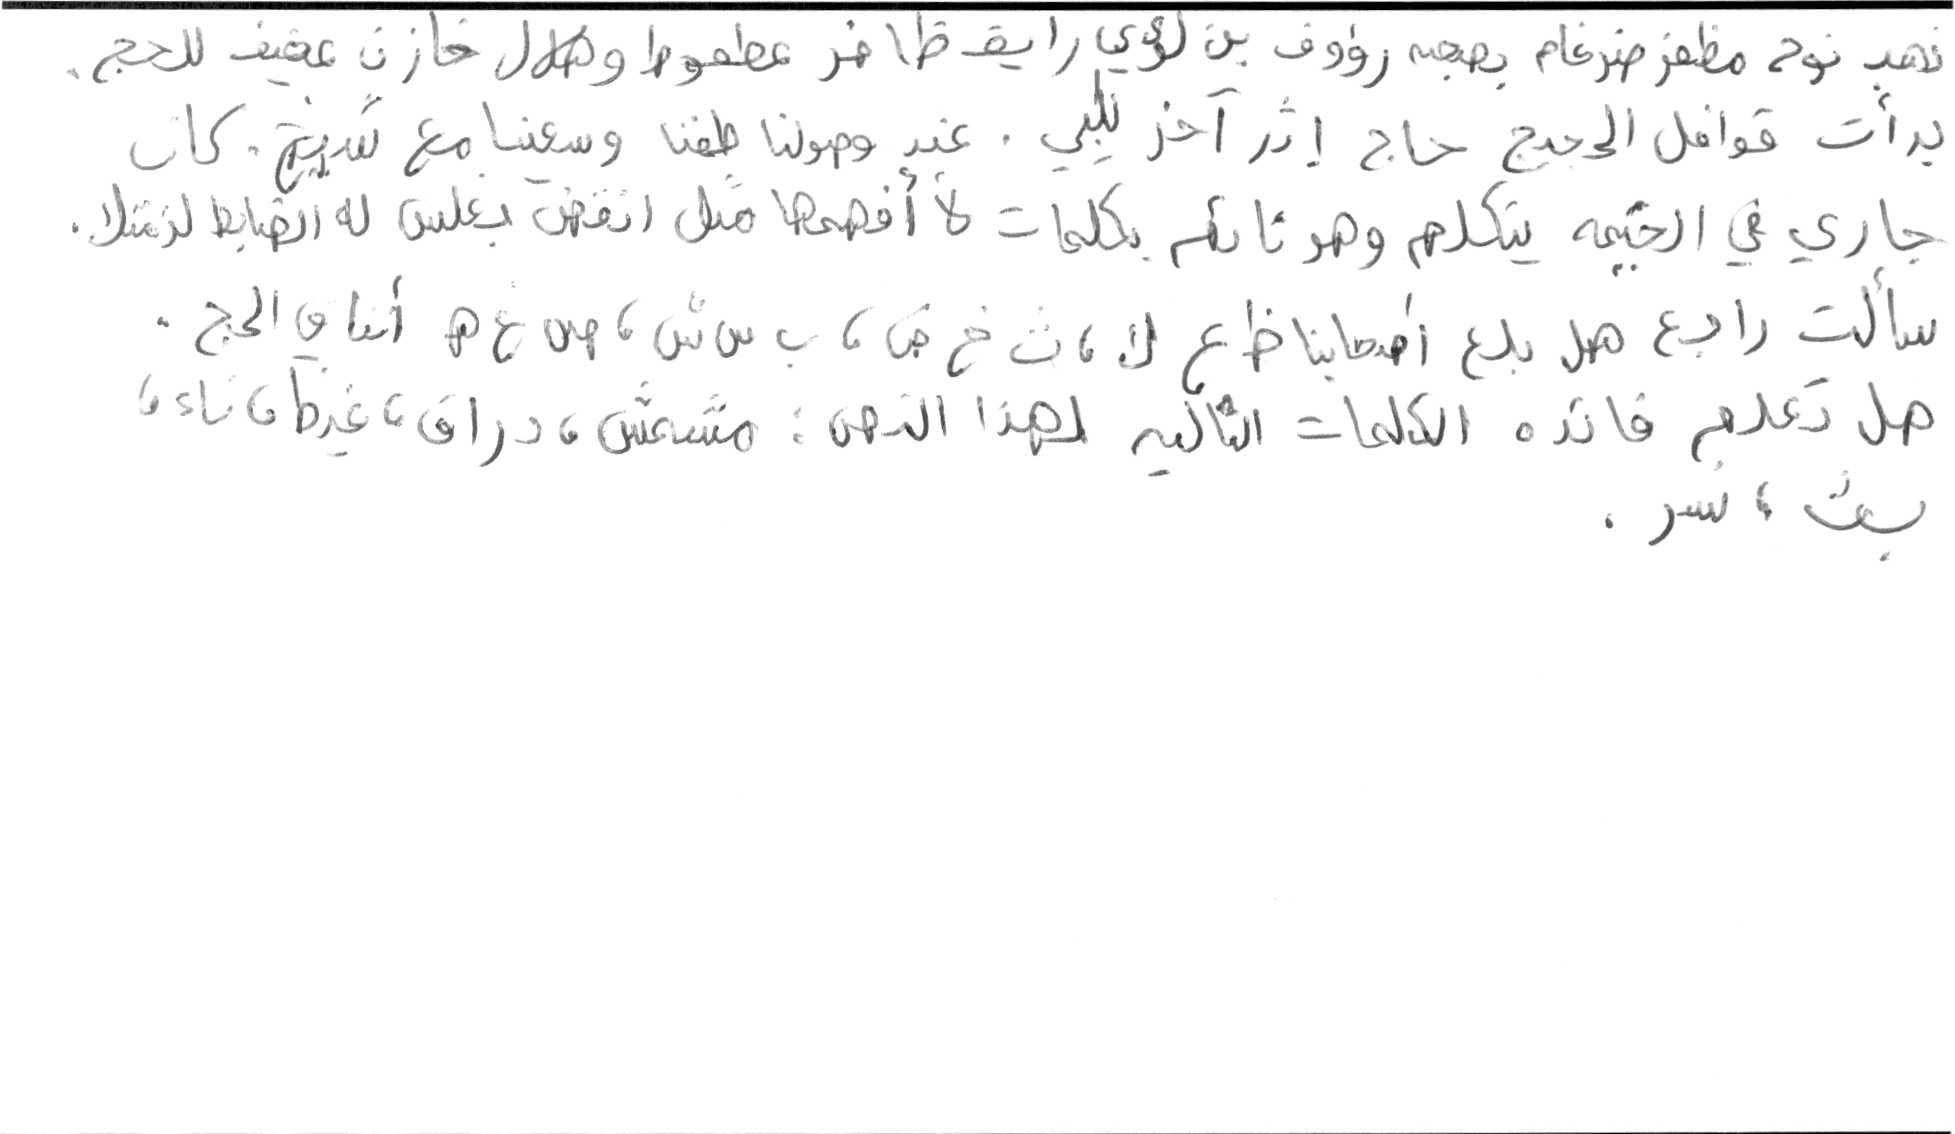 ذهب نوح مظفر ضرغام بصحبه رؤوف بن لؤي رايق ظافر عطعوط وهلال خازن عفيف للحج.
بدأت قوافل الحجيج حاج إثر آخر تلبي. عند وصولنا طفنا وسعينا مع شيخ. كان
جاري في الخيمه يتكلم وهو نائم بكلمات لا أفهمها مثل انقض بغلس له الضابط لزمتك.
سألت راجع هل بلغ أصحابنا ظ ع ك، ث خ ض، ب س ش، ص غ ه أنفاق الحج.
هل تعلم فائده الكلمات التاليه لهذا النص: مشمش، دراق، غيظ، ناء،
بث، نسر.